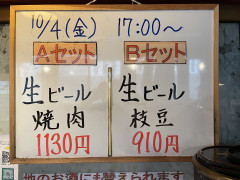 10/4(金) 17:00～
Aセット Bセット
生ビール 生ビール
焼肉 枝豆
1130円 910円
他のお酒にも替えられます